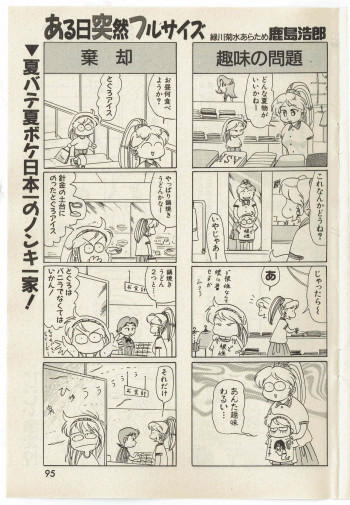 ある日突然フルサイズ
緑川菊水あらため鹿島浩郎
▼夏バテ夏ボケ日本一のノンキ一家!
趣味の問題
どんな夏物が
いいかねー
これなんかどうね?
いやじゃあー
じゃったら〜
あ
あんた趣味
わるい…
棄却
お昼何食べ
ようか?
とぐろアイス
やっぱり鍋焼き
うどんかなー
針金の土台に
のったとぐろアイス
鍋焼き
うどん
2つと…
お会計
とぐろは
バニラでなくては
いかん!
それだけ
お会計
95